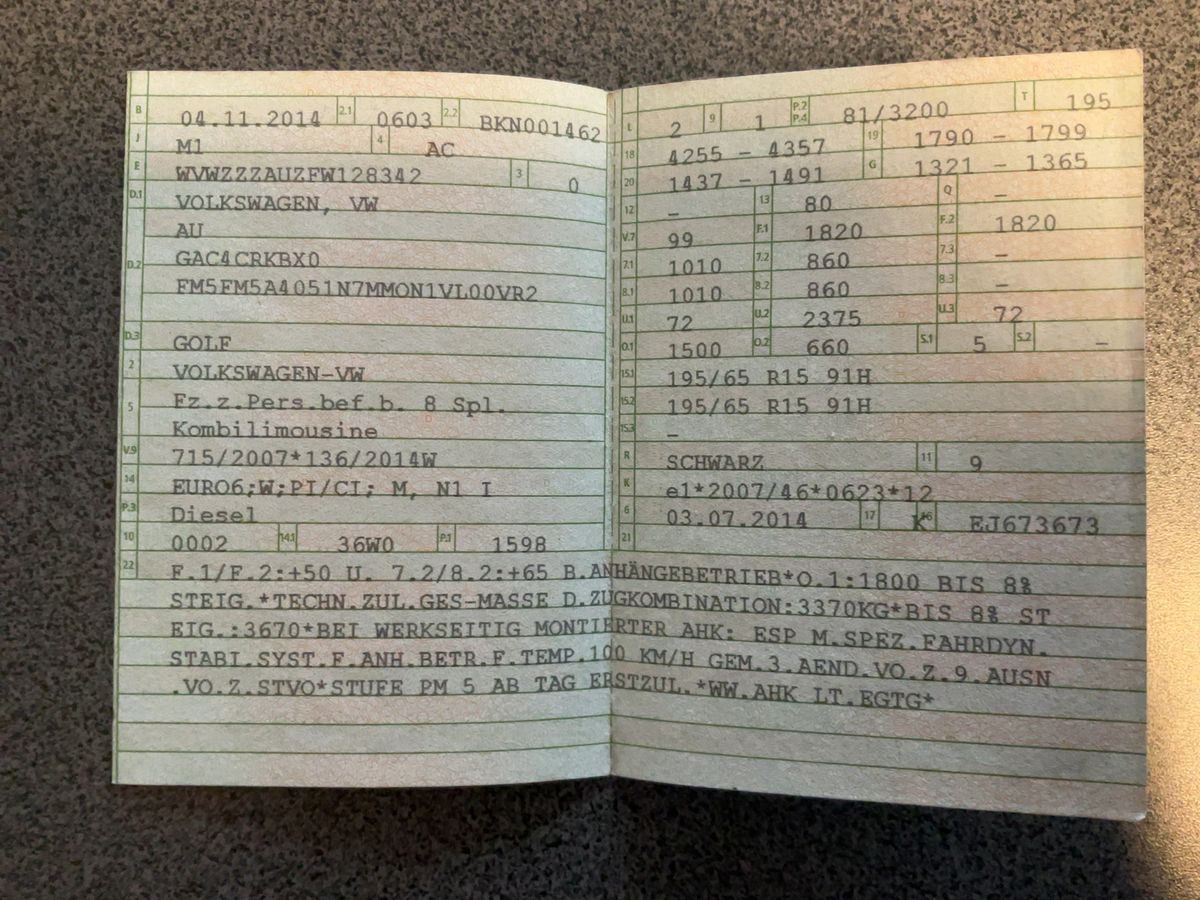 B 04.11.2014 2.1 0603 2.2 BKN001462
J M1 4 AC
E WVWZZZAUZFW128342 3 0
D.1 VOLKSWAGEN, VW
AU
D.2 GAC4CRKBX0
FM5FM5A4051N7MMON1VL00VR2
D.3 GOLF
2 VOLKSWAGEN-VW
5 Fz.z.Pers.bef.b. 8 Spl.
Kombilimousine
V.9 715/2007*136/2014W
14 EURO6;W;PI/CI; M, N1 I
P.3 Diesel
10 0002 14.1 36W0 P.1 1598
L 2 9 1 P.2 P.4 81/3200 T 195
18 4255 - 4357 19 1790 - 1799
20 1437 - 1491 G 1321 - 1365
12 - 13 80 Q -
V.7 99 F.1 1820 F.2 1820
7.1 1010 7.2 860 7.3 -
8.1 1010 8.2 860 8.3 -
U.1 72 U.2 2375 U.3 72
O.1 1500 O.2 660 S.1 5 S.2 -
15.1 195/65 R15 91H
15.2 195/65 R15 91H
15.3 -
R SCHWARZ 11 9
K e1*2007/46*0623*12
6 03.07.2014 17 K 16 EJ673673
21
22 F.1/F.2:+50 U. 7.2/8.2:+65 B.ANHÄNGEBETRIEB*O.1:1800 BIS 8%
STEIG.*TECHN.ZUL.GES-MASSE D.ZUGKOMBINATION:3370KG*BIS 8% ST
EIG.:3670*BEI WERKSEITIG MONTIERTER AHK: ESP M.SPEZ.FAHRDYN.
STABI.SYST.F.ANH.BETR.F.TEMP.100 KM/H GEM.3.AEND.VO.Z.9.AUSN
.VO.Z.STVO*STUFE PM 5 AB TAG ERSTZUL.*WW.AHK LT.EGTG*